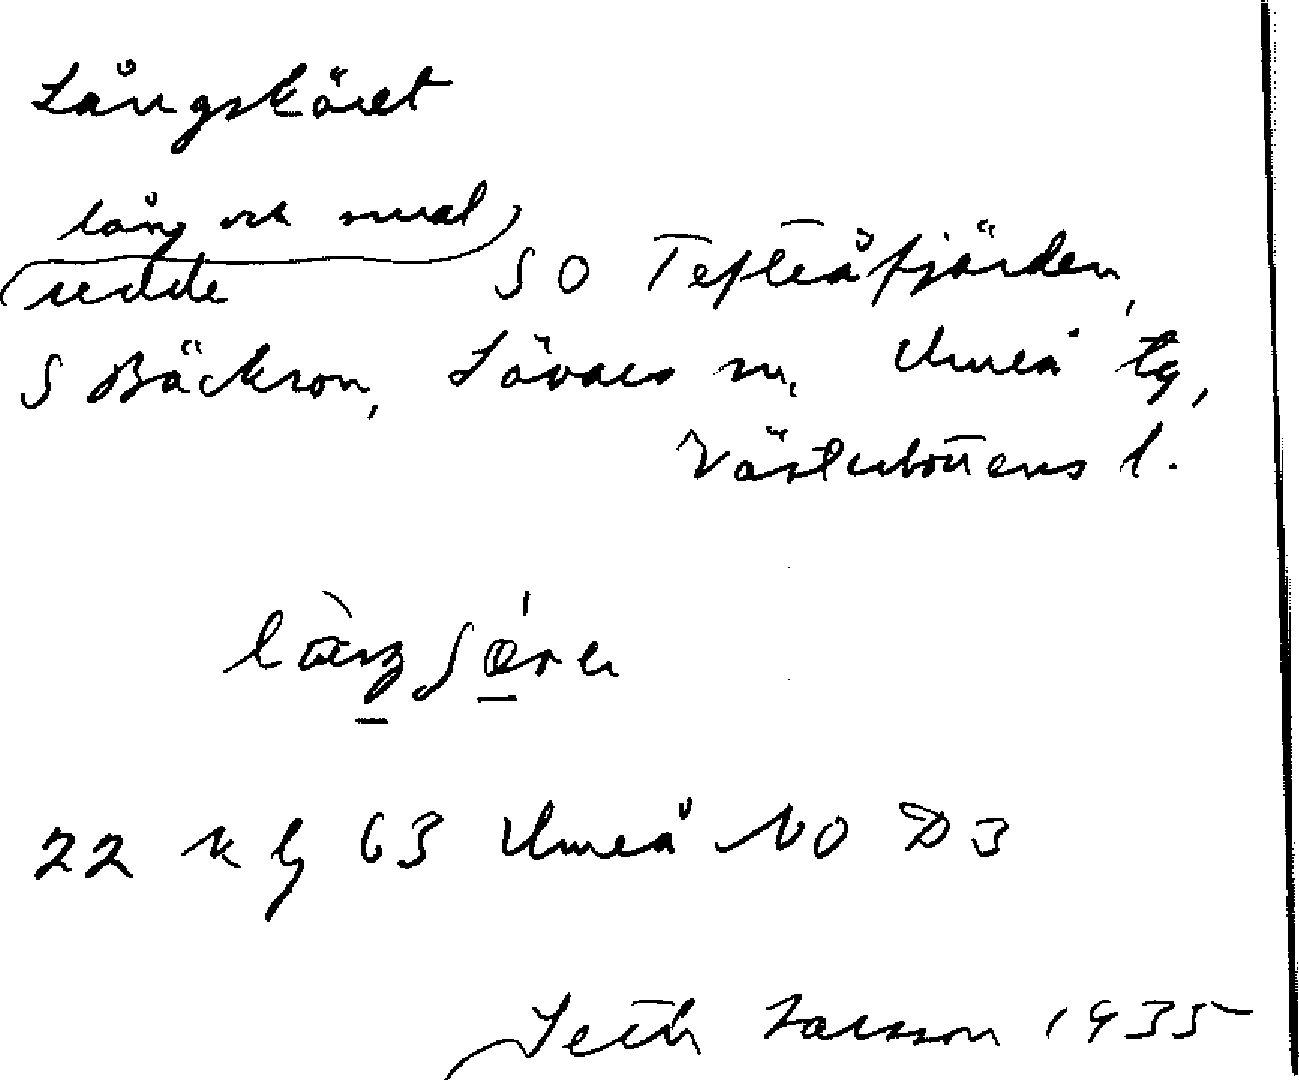 Långsköret
lång och smal
udde SO Tefteåfjärden,
S Bäckson, Sävars sn, Umeå tg,
Västerbottens l.
22 k g 63 Umeå NO D3
Seth Larsson 1935